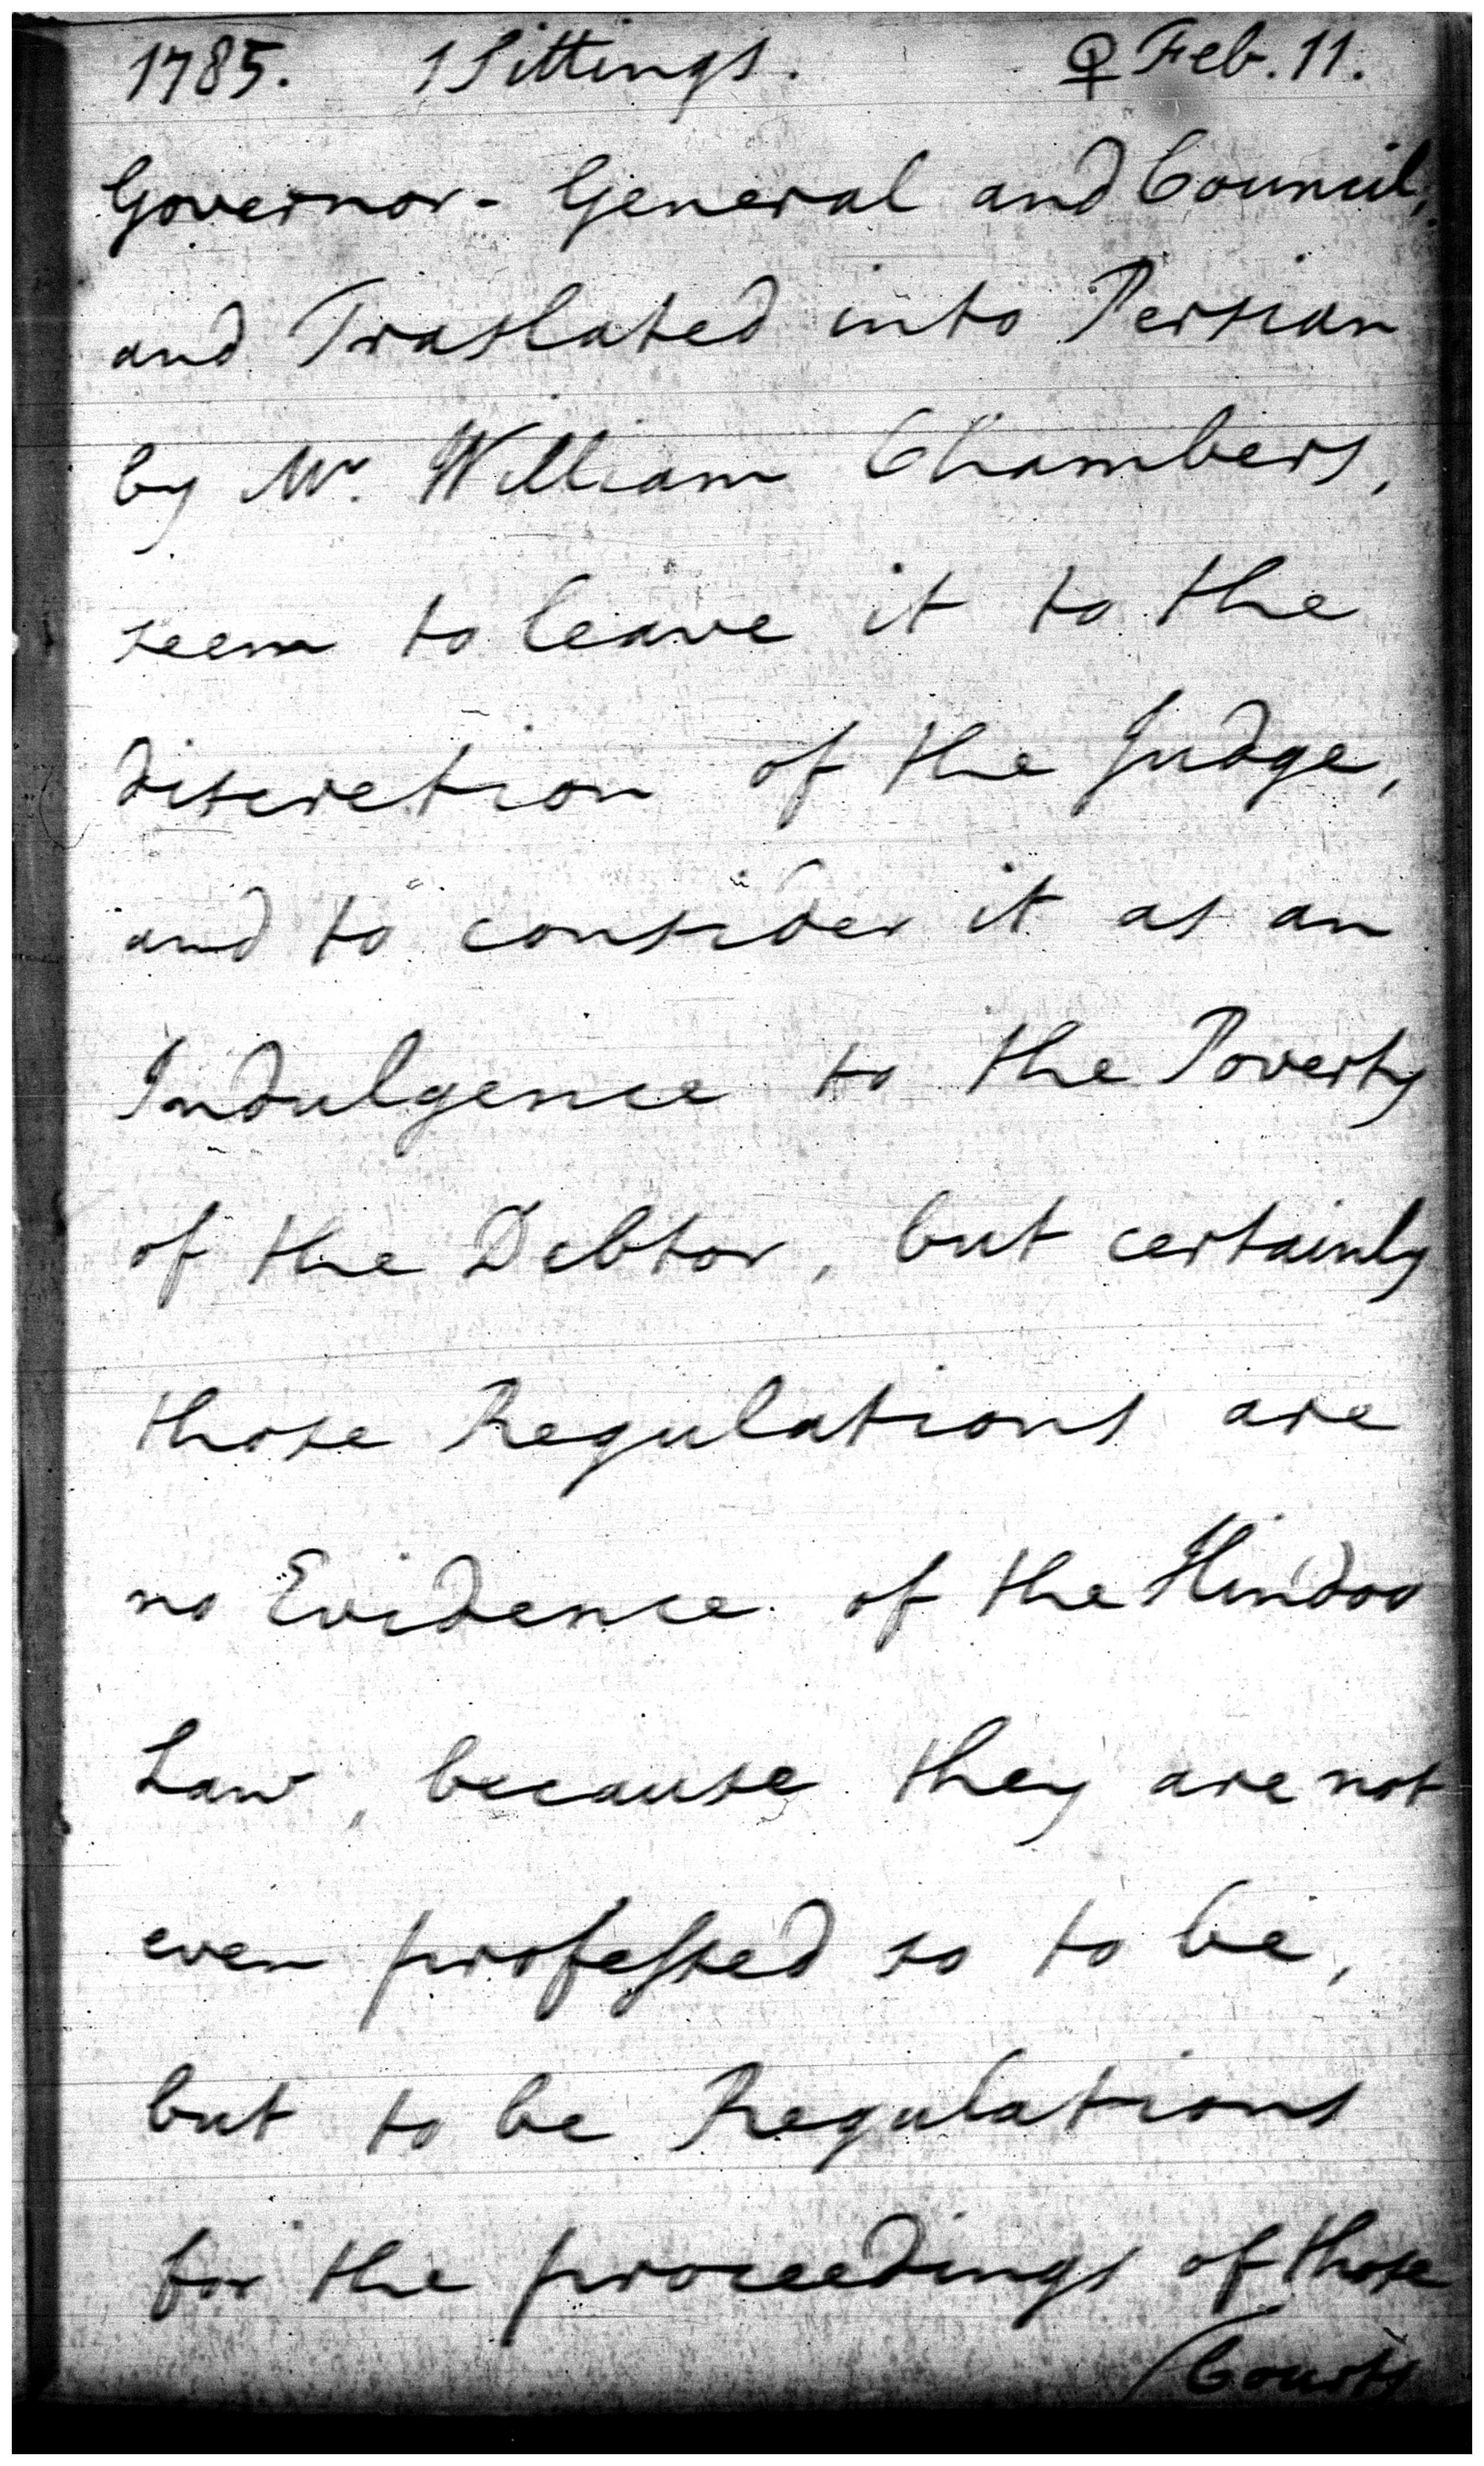 1785. 1 Sittings. ♀ Feb. 11.
Governor-General and Council,
and Traslated into Persian
by Mr. William Chambers,
seem to leave it to the
discretion of the Judge,
and to consider it as an
Indulgence to the Poverty
of the Debtor, but certainly
those Regulations are
no Evidence of the Hindoo
Law, because they are not
even professed so to be,
but to be Regulations
for the proceedings of those
/Courts